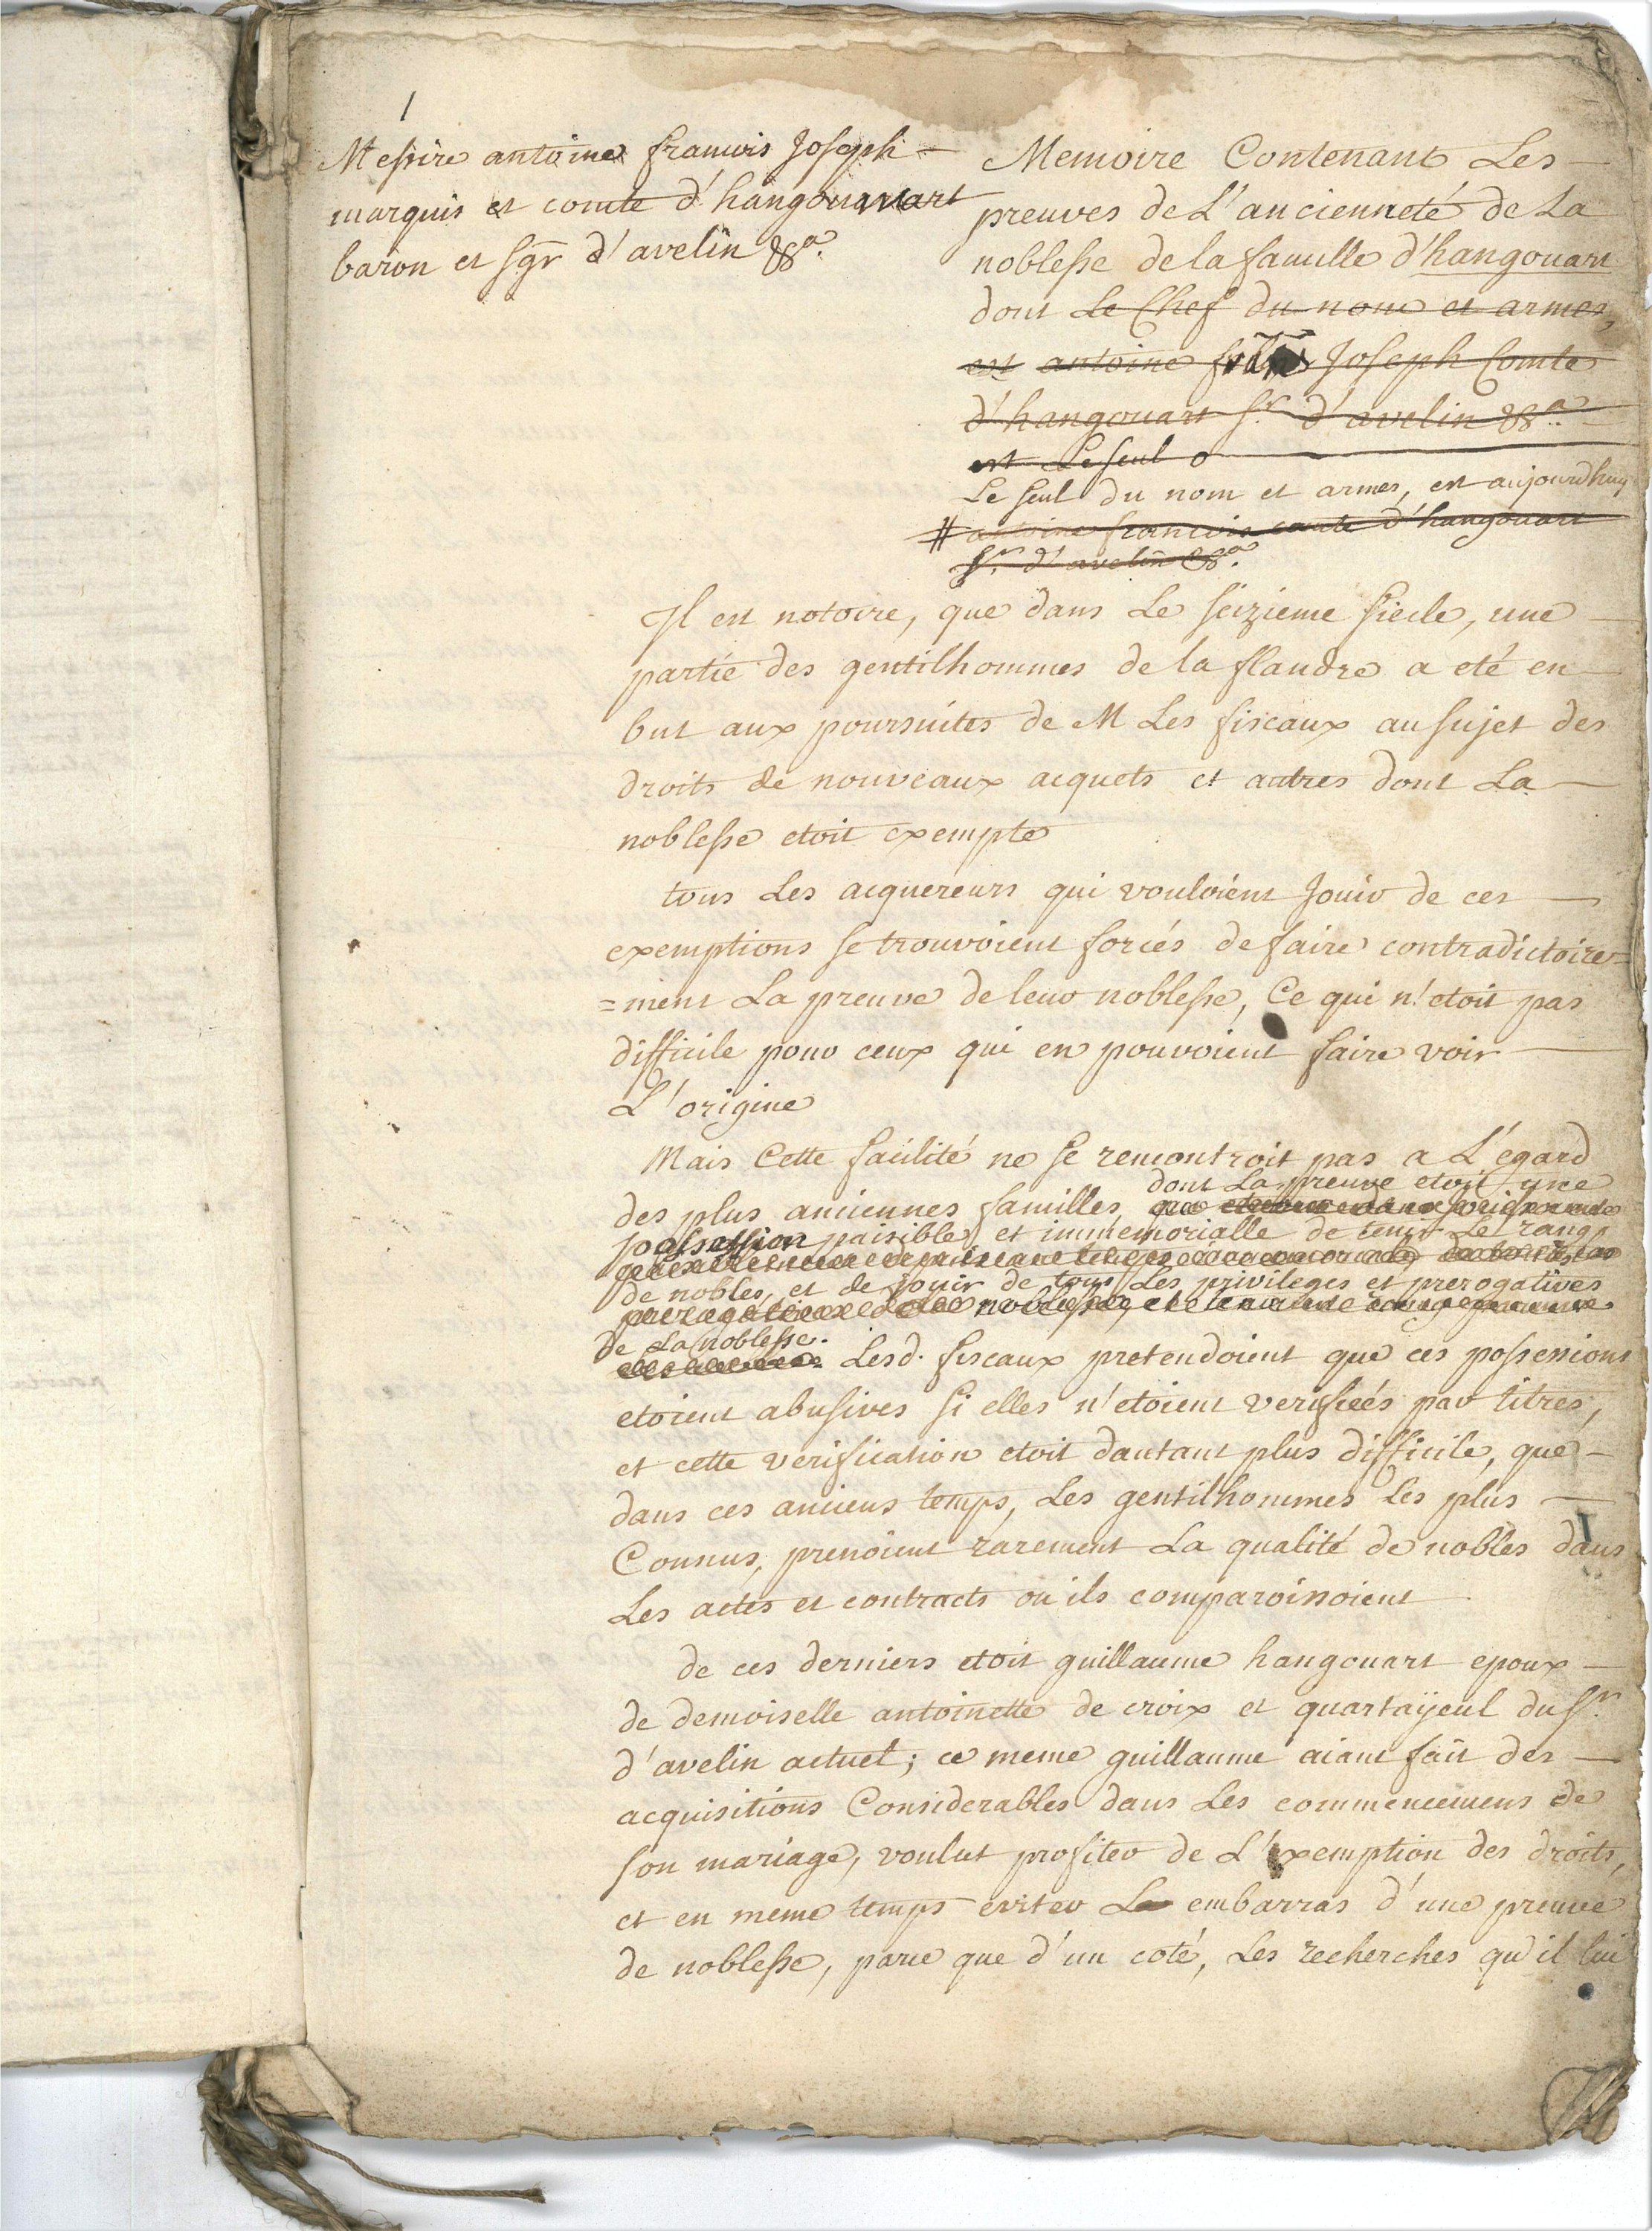 1
Messire antoine francois Joseph
marquis et comte d'hangouwart
baron et sgr d'avelin &a.
Memoire Contenant Les
preuves de L'ancienneté de La
noblesse de la famille d'hangouart
dont Le Chef du nom et armes,
est antoine Joseph Comte
d'hangouart sr. d'avelin &a.
est Le seul
Le seul du nom et armes, est aujourdhuy
# antoine francois comte d'hangouart
sr. d'avelin &a.
Il est notoire, que dans Le seizieme siecle, une
partie des gentilhommes de la flandre a eté en
but aux poursuites de M Les fiscaux au sujet des
droits de nouveaux acquets et autres dont La
noblesse etoit exempte
tous Les acquereurs qui vouloient Jouir de ces
exemptions se trouvoient forcés de faire contradictoire=
=ment La preuve de leur noblesse, Ce qui n'etoit pas
difficile pour ceux qui en pouvoient faire voir
L'origine
Mais Cette facilité ne se rencontroit pas a L'égard
dont La preuve etoit une
des plus anciennes familles,
possession paisible et immemorialle de tenir Le rang
de nobles, et de jouir de tous Les privileges et prerogatives
de La noblesse.
Lesd. fiscaux pretendoient que ces possessions
etoient abusives si elles n'etoient verifieés par titres,
et cette verification etoit dautant plus difficile, que
dans ces anciens temps, Les gentilhommes Les plus
Connus, prenoient rarement La qualité de nobles dans
Les actes et contracts ou ils comparoissoient
de ces derniers etoit guillaume hangouart epoux
de demoiselle antoinette de croix et quartayeul du sr.
d'avelin actuel; ce meme guillaume aiant fait des
acquisitions Considerables dans Les commencemens de
son mariage, voulut profiter de L'exemption des droits,
et en meme temps eviter Le embarras d'une preuve
de noblesse, parce que d'un coté, Les recherches qu'il lui